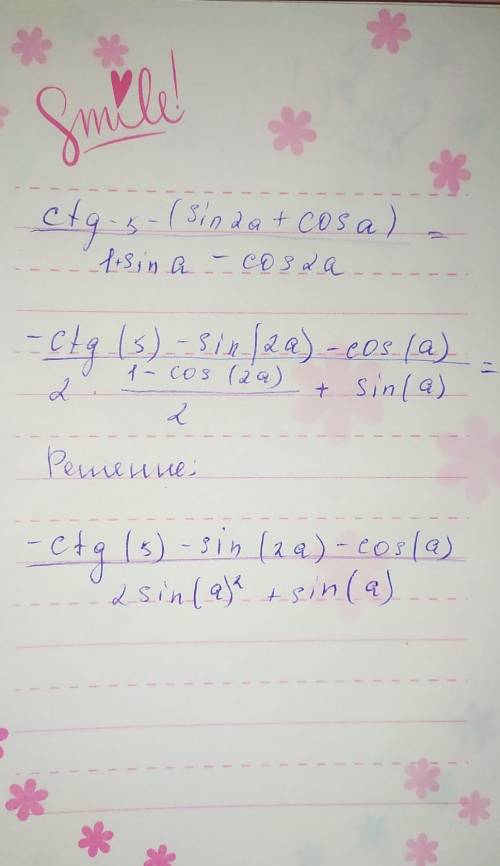 Smile!
ctg - 5 - (sin 2a + cos a) =
1+sin a - cos 2a
-ctg (5) - sin (2a) - cos (a) =
2 · 1 - cos (2a) + sin (a)
2
Решение:
-ctg (5) - sin (2a) - cos (a)
2 sin (a)² + sin (a)